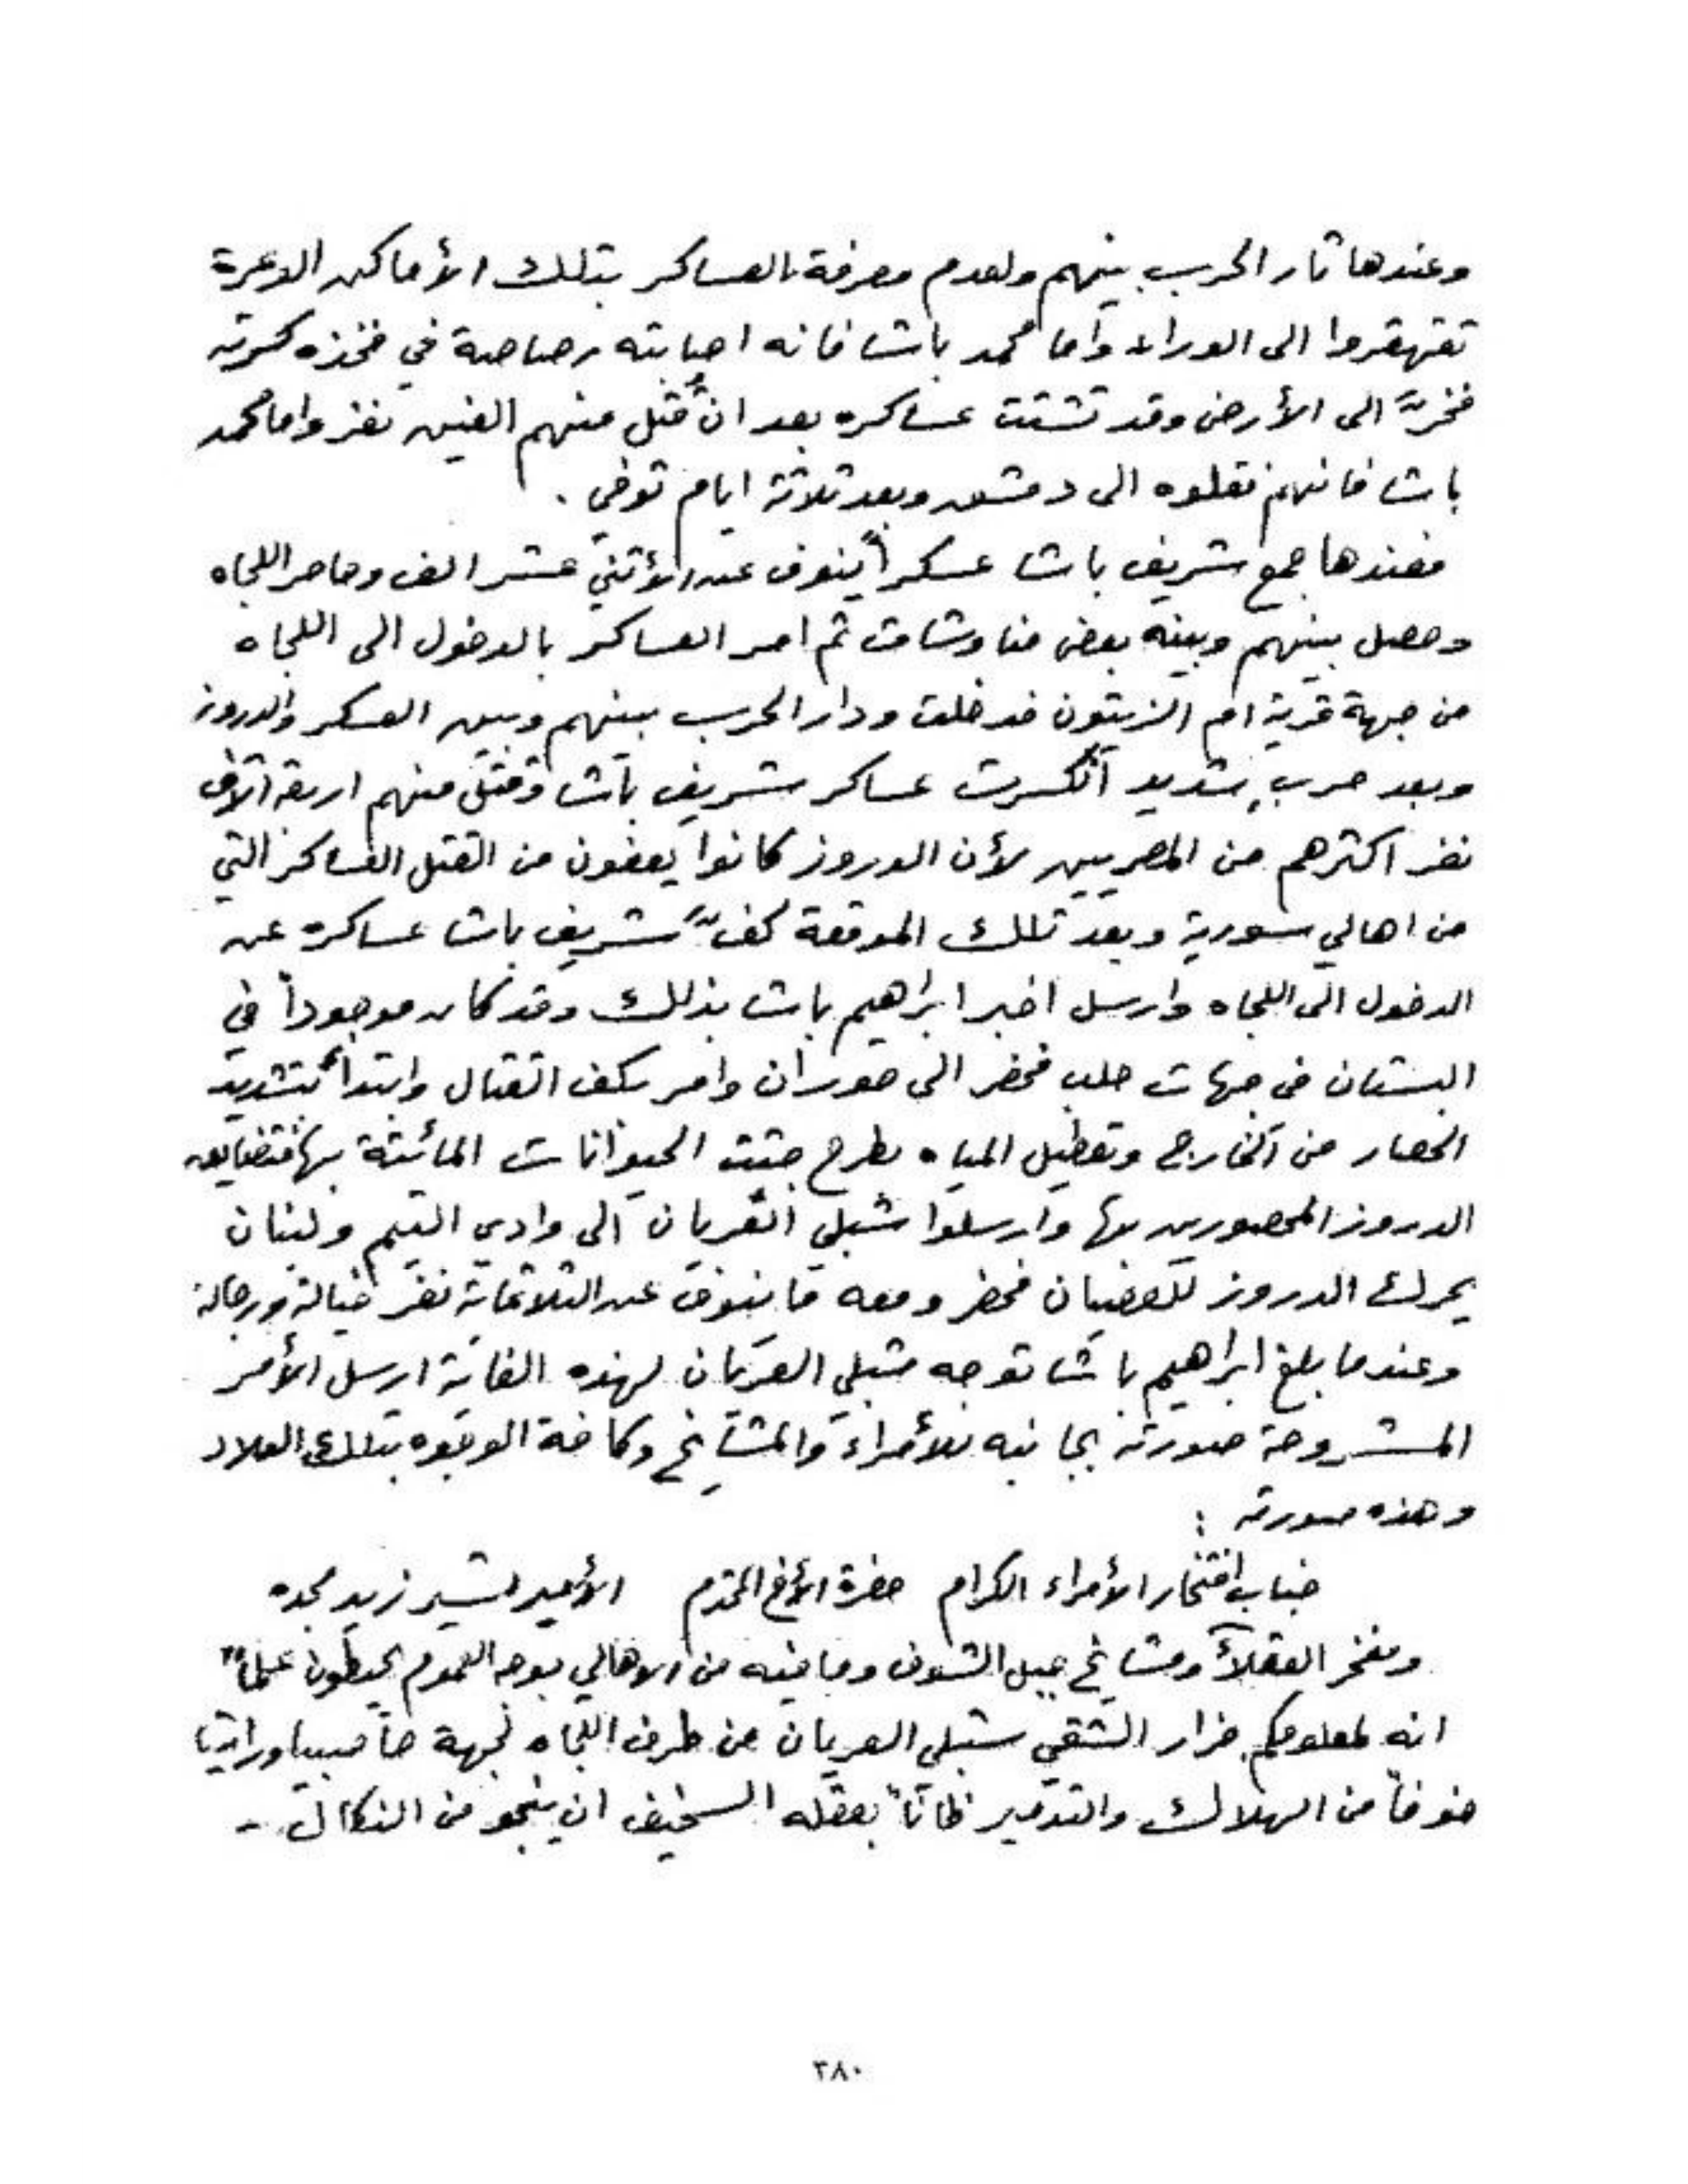 وعندها ثار الحرب بينهم ولعدم معرفة العساكر بتلك الأماكن الوعرة
تقهقروا الى الوراء واما محمد باشا فانه اصابته رصاصة في فخذه كسرته
فخرّ الى الأرض وقد تشتت عساكره بعد ان قُتل منهم الفين نفر واما محمد
باشا فانهم نقلوه الى دمشق وبعد ثلاثة ايام توفي .
فعندها جمع شريف باشا عسكراً ينوف عن الأثني عشر الف وحاصر اللجاه
وحصل بينهم وبينه بعض مناوشات ثم امر العساكر بالدخول الى اللجاه
من جهة قرية ام الزيتون فدخلت ودار الحرب بينهم وبين العسكر والدروز
وبعد حربٍ شديد انكسرت عساكر شريف باشا وقتل منهم اربعة آلاف
نفر اكثرهم من المصريين لأن الدروز كانوا يعفون من القتل العساكر التي
من اهالي سورية وبعد تلك الموقعة كفّ شريف باشا عساكره عن
الدخول الى اللجاه وارسل اخبر ابراهيم باشا بذلك وقد كان موجوداً في
البستان في جهات حلب فحضر الى حوران وامر بكف القتال وابتدأ بتشديد
الحصار من الخارج وتعطيل المياه بطرح جثث الحيوانات المائتة بها فتضايق
الدروز المحصورين بها وارسلوا شبلي العريان الى وادي التيم ولبنان
يحرك الدروز للعصيان فحضر ومعه ما ينوف عن الثلاثماية نفر خيالة ورجالة
وعندما بلغ ابراهيم باشا توجه شبلي العريان لهذه الغاية ارسل الأمر
المشروحة صورته بجانبه للأمراء والمشايخ وكافة الوجوه بتلك البلاد
وهذه صورته :
جناب افتخار الأمراء الكرام حضرة الأخ المحترم الأمير بشير زيد مجده
ومفخر العقلاء ومشايخ جبل الشوف وما فيه من الاهالي بوجه العموم يحيطون علماً
انه لمعلومكم فرار الشقي شبلي العريان من طرف اللجاه لجهة حاصبيا وراشيا
خوفاً من الهلاك والتدمير ظاناً بعقله السخيف ان ينجو من النكال -
٢٨٠